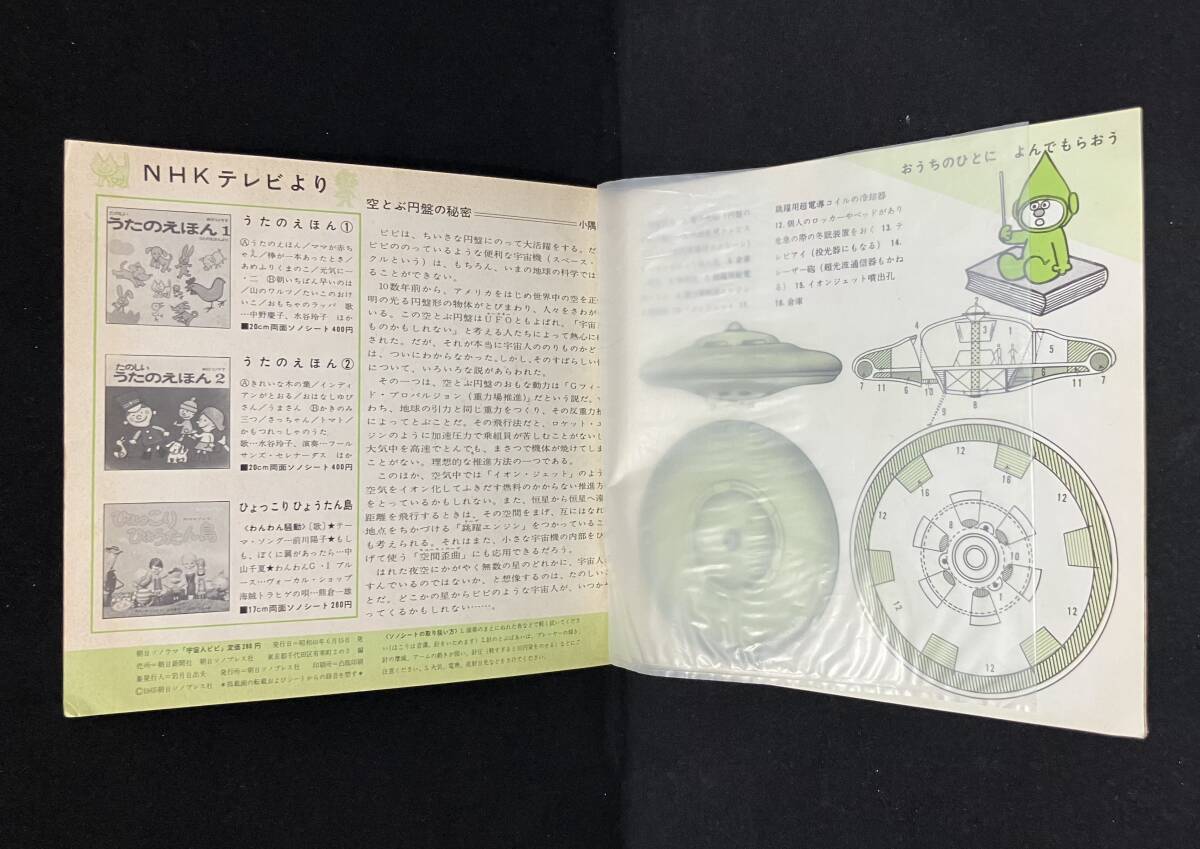 NHKテレビより
うたのえほん 1
うたのえほん①
Ⓐうたのえほん/ママが赤ち
ゃん/棒が一本あったとさ/
あめふりくまのこ/元気に一
・二 Ⓑ朝いちばん早いのは
/山のワルツ/たいこのおけ
いこ/おもちゃのラッパ 歌
…中野慶子、水谷玲子 ほか
■20cm両面ソノシート400円
たのしい
うたのえほん 2
うたのえほん②
Ⓐきれいな木の葉/インディ
アンがとおる/おはなしゆび
さん/うまさん Ⓑかきのみ
三つ/さっちゃん/トマト/
かもつれっしゃのうた
歌…水谷玲子、演奏…フール
サンズ・セレナーダス ほか
■20cm両面ソノシート400円
ひょっこり
ひょうたん島
ひょっこりひょうたん島
《わんわん騒動》〔歌〕★テー
マ・ソング…前川陽子★もし
も、ぼくに翼があったら…中
山千夏★わんわんG・I ブル
ース…ヴォーカル・ショップ
海賊トラヒゲの唄…熊倉一雄
■17cm両面ソノシート280円
空とぶ円盤の秘密
小隅
ピピは、ちいさな円盤にのって大活躍をする。だ
ピピののっているような便利な宇宙機(スペース・
クルという)は、もちろん、いまの地球の科学では
ることができない。
10数年前から、アメリカをはじめ世界中の空を正
明の光る円盤形の物体がとびまわり、人々をさわが
いる。この空とぶ円盤はUFOともよばれ、「宇宙
ものかもしれない」と考える人たちによって熱心に
された。だが、それが本当に宇宙人ののりものかど
は、ついにわからなかった。しかし、そのすばらしい
について、いろいろな説があらわれた。
その一つは、空とぶ円盤のおもな動力は「Gフィ
ド・プロパルジョン(重力場推進)」だという説だ。
わち、地球の引力と同じ重力をつくり、その反重力
によってとぶことだ。その飛行法だと、ロケット・エ
ジンのように加速圧力で乗組員が苦しむことがないし
大気中を高速でとんでも、まさつで機体が焼けてしま
ことがない。理想的な推進方法の一つである。
このほか、空気中では「イオン・ジェット」のよう
空気をイオン化してふきだす燃料のかからない推進方
をとっているかもしれない。また、恒星から恒星へ遠
距離を飛行するときは、その空間をまげ、互にはなれ
地点をちかづける「跳躍エンジン」をつかっているこ
も考えられる。それはまた、小さな宇宙機の内部をひ
げて使う「空間歪曲」にも応用できるだろう。
はれた夜空にかがやく無数の星のどれかに、宇宙人
すんでいるのではないか、と想像するのは、たのしい
とだ。どこかの星からピピのような宇宙人が、いつか
ってくるかもしれない……。
朝日ソノラマ「宇宙人ピピ」定価280円 発行日=昭和40年6月15日 発
売所=朝日新聞社 朝日ソノプレス社 東京都千代田区有楽町2の3 編
発行所=朝日ソノプレス社
©1965朝日ソノプレス社 *掲載画の転載およびシートからの録音を禁す*
《ソノシートの取り扱い方》
おうちのひとに よんでもらおう
跳躍用超電導コイルの冷却器
12. 個人のロッカーやベッドがあり
救急の際の冬眠装置をおく 13. テ
レビアイ(投光器にもなる) 14.
レーザー砲(超光波通信器もかね
る) 15. イオンジェット噴出孔
16. 倉庫
2
4
3
1
5
6
7
11
10
8
11
7
9
12
16
12
16
12
8
7
10
1
12
12
12